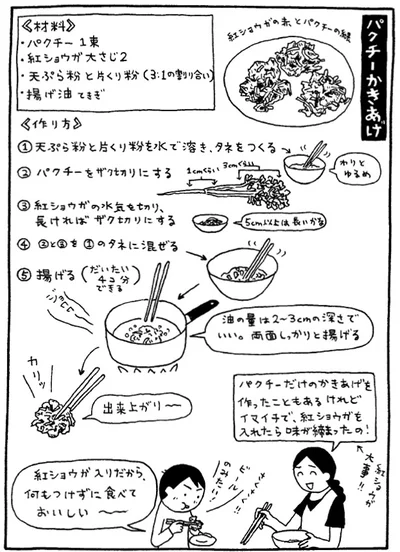 パクチーかきあげ
《材料》
・パクチー 1束
・紅ショウガ 大さじ2
・天ぷら粉と片くり粉(3:1の割り合い)
・揚げ油 てきぎ
紅ショウガの赤とパクチーの緑
《作り方》
①天ぷら粉と片くり粉を水で溶き、タネをつくる
わりと
ゆるめ
②パクチーをザク切りにする
1cmくらい
3cmくらい
③紅ショウガの水気を切り、
長ければザク切りにする
5cm以上は長いかな
④ ②と③を①のタネに混ぜる
⑤揚げる(だいたい
4コ分
できる)
油の量は2〜3cmの深さで
いい。両面しっかりと揚げる
カリッ
出来上がり〜
パクチーだけのかきあげを
作ったこともあるけれど
イマイチで、紅ショウガを
入れたら味が締まったの!
紅ショウガが
大事!!
紅ショウガ入りだから、
何もつけずに食べて
おいしい〜
ビール
のみたい!